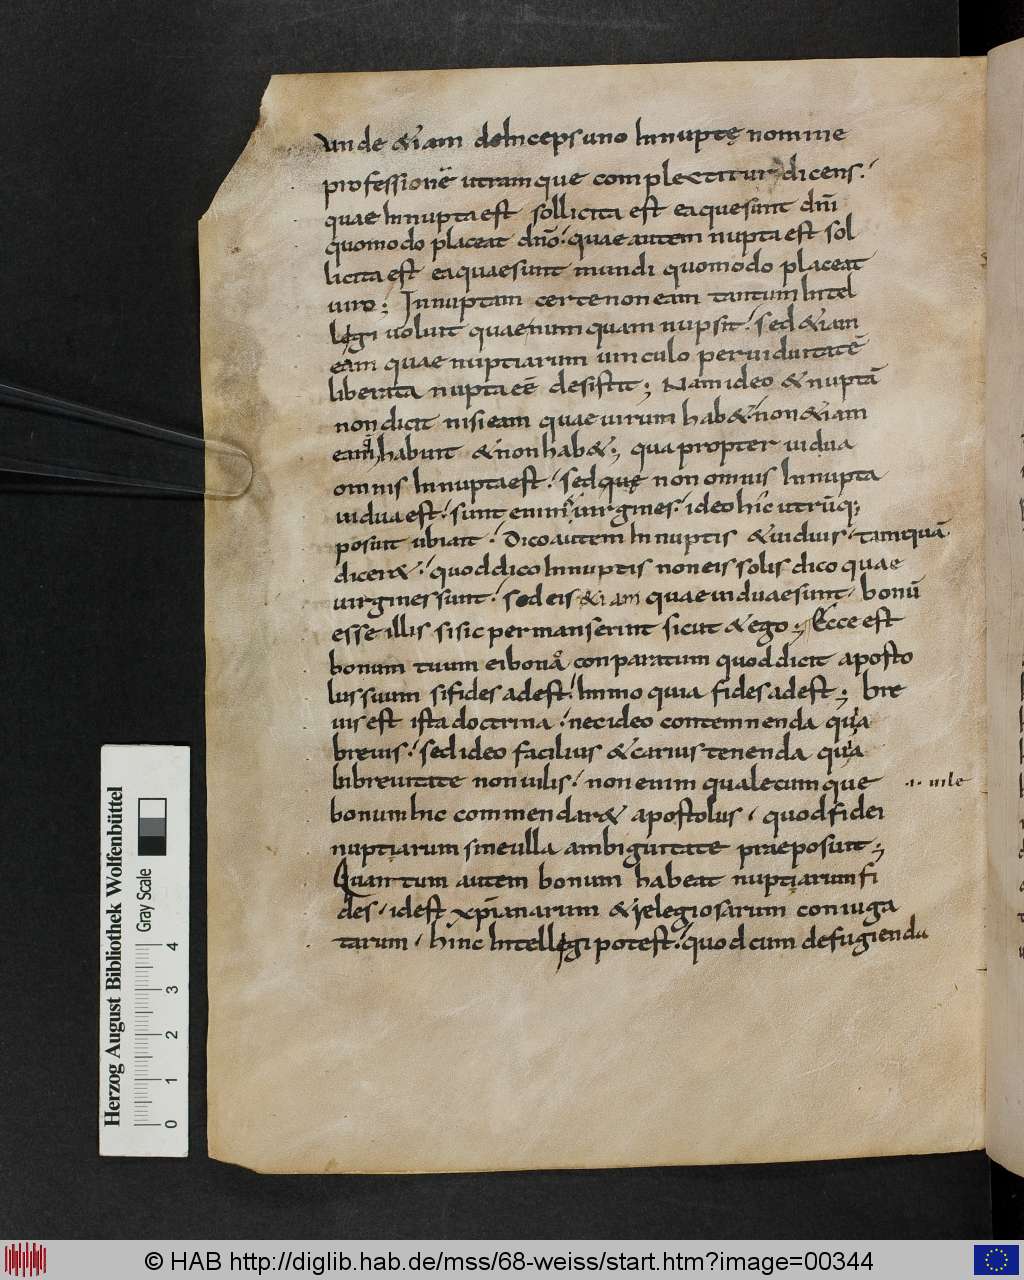 unde &iam deinceps uno innuptę nomine
professionē utramque complectitur dicens.
quae innupta est sollicita est ea que sunt dn̄i
quomodo placeat dn̄o. quae autem nupta est sol
licita est ea quae sunt mundi quomodo placeat
uiro; Innuptam certe non eam tantum intel
legi uoluit quae numquam nupsit. sed &iam
eam quae nuptiarum uinculo per uiduitatē
liberata nupta eē desistit; Nam ideo & nuptā
non dicit nisi eam quae uirum hab&. non &iam
eam habuit & non hab&; qua propter uidua
omnis innupta est. sed quę non omnis innupta
uidua est. sunt enim uirgines. ideo hic utrūq;
posuit ubi ait. Dico autem innuptis & uiduis. tamquā
dicer&. quod dico innuptis non eis solis dico quae
uirgines sunt. sed eis &iam quae uiduae sunt. bonū
esse illis si sic permanserint sicut & ego; Ecce est
bonum tuum ei bono conparatum quod dicit aposto
lus suum si fides adest. immo quia fides adest; bre
uis est ista doctrina. nec ideo contemnenda quia
breuis. sed ideo facilius & carius tenenda quia
in breuitate non uilis. non enim qualecumque .i. uile
bonum hic commendar& apostolus. quod fidei
nuptiarum sine ulla ambiguitate praeposuit;
Quantum autem bonum habeat nuptiarum fi
des. id est xp̄ianarum & relegiosarum coniuga
tarum. hinc intellegi potest. quod cum de fugienda
Herzog August Bibliothek Wolfenbüttel
Gray Scale
0 1 2 3 4
© HAB http://diglib.hab.de/mss/68-weiss/start.htm?image=00344